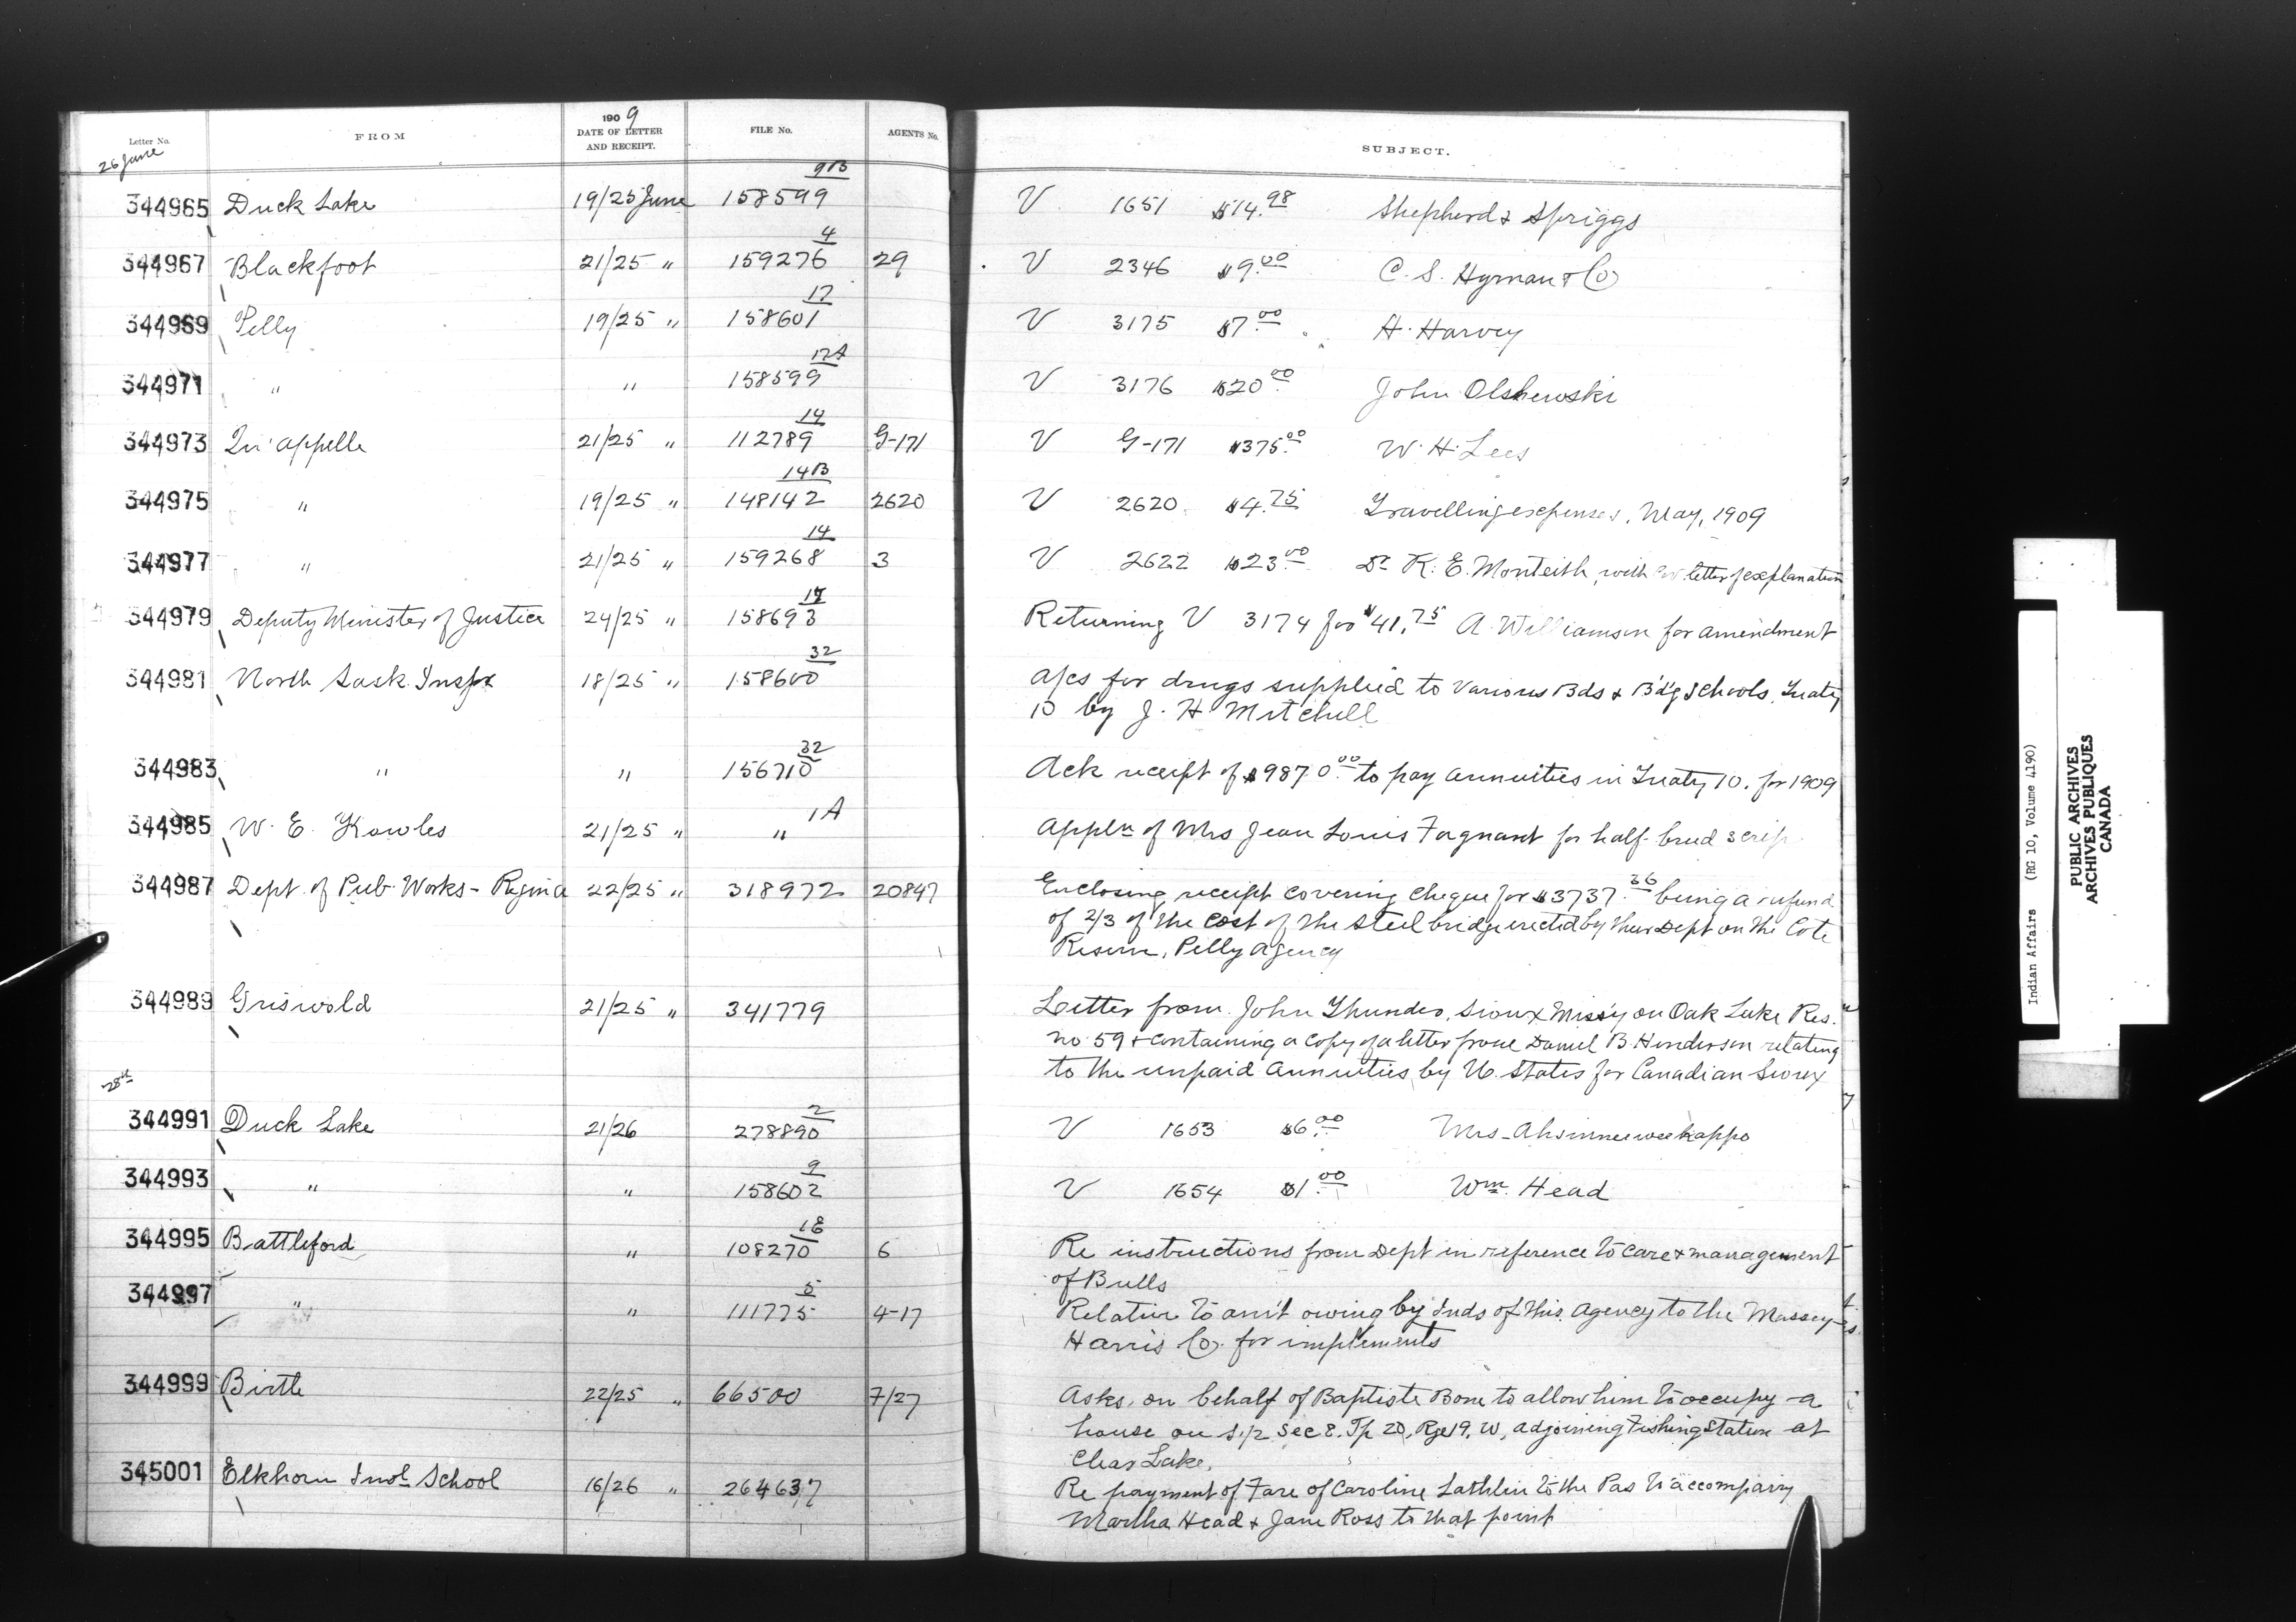 Letter No. FROM 1909 DATE OF LETTER AND RECEIPT. FILE No. AGENTS No. SUBJECT.
26 June
344965 Duck Lake 19/25 June 158599 9B V 1651 $14.98 Shepherd & Spriggs
344967 Blackfoot 21/25 " 159276 4 29 V 2346 $9.00 C. S. Hyman & Co
344969 Pelly 19/25 " 158601 17 V 3175 $7.00 H. Harvey
344971 " " 158599 17A V 3176 $20.00 John Olshewski
344973 Qu'appelle 21/25 " 112789 14 G-171 V G-171 $375.00 W. H. Lees
344975 " 19/25 " 148142 14B 2620 V 2620 $4.75 Travelling expenses, May, 1909
344977 " 21/25 " 159268 14 3 V 2622 $23.00 Dr K. E. Monteith, with letter of explanation
344979 Deputy Minister of Justice 24/25 " 158693 Returning V 3174 for $41.75 A. Williamson for amendment
344981 North Sask. Inspx 18/25 " 158600 32 a/cs for drugs supplied to various Bds & B'd'g Schools, Treaty
10 by J. H. Mitchell
344983 " " 156710 32 Ack receipt of $9870.00 to pay annuities in Treaty 10. for 1909
344985 W. E. Knowles 21/25 " " 1A Appln of Mrs Jean Louis Fagnant for half-breed scrip
344987 Dept. of Pub. Works - Regina 22/25 " 318972 20847 Enclosing receipt covering cheque for $3737.36 being a refund
of 2/3 of the cost of the steel bridge erected by their Dept on the Cote
Reserve, Pelly Agency
344989 Griswold 21/25 " 341779 Letter from John Thunder, Sioux Miss'y on Oak Lake Res.
no 59 & containing a copy of a letter from Daniel B. Henderson relating
to the unpaid annuities by U. States for Canadian Sioux
28th
344991 Duck Lake 21/26 278890 2 V 1653 $6.00 Mrs. Ahsinneeweekappo
344993 " " 158602 9 V 1654 $1.00 Wm. Head
344995 Battleford " 108270 18 6 Re instructions from Dept in reference to care & management
of Bulls
344997 " " 111775 5 4-17 Relative to am't owing by Inds of this Agency to the Massey
Harris Co. for implements
344999 Birtle 22/25 " 66500 7/27 Asks, on behalf of Baptiste Bone to allow him to occupy a
house on S.1/2 Sec 8. Tp 20, Rge 19, W, adjoining Fishing Station at
Clear Lake.
345001 Elkhorn Indl School 16/26 " 264637 Re payment of Fare of Caroline Lathlin to the Pas to accompany
Martha Head & Jane Ross to that point
Indian Affairs (RG 10, Volume 4190)
PUBLIC ARCHIVES
ARCHIVES PUBLIQUES
CANADA